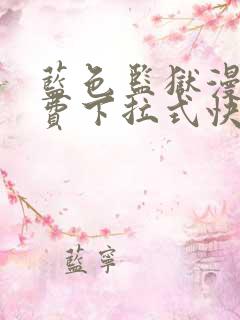 藍色監獄漫
費下拉式快
藍寧